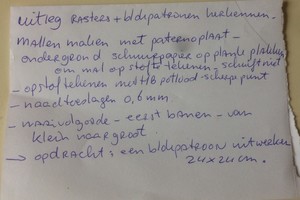 uitleg RASTERS + blokpatronen herkennen.
Mallen maken met patternoplaat -
ondergrond schuurpapier op plank plakken
om mal op stof te tekenen - schuift niet
- op stof tekenen met HB potlood - scherpe punt
- naadtoeslagen 0,6 mm
- naaivolgorde - eerst banen - van
klein naar groot.
→ opdracht: een blokpatroon uitwerken
24x24 cm.